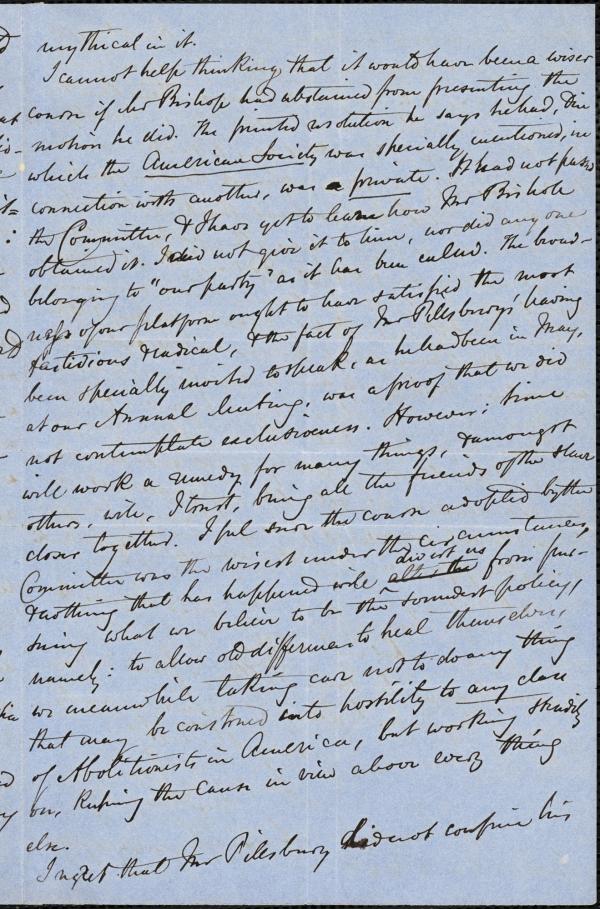 mythical in it.
I cannot help thinking that it would have been a wiser
course if Mr Bishop had abstained from presenting the
motion he did. The printed resolution he says he had, & in
which the American Society was specially mentioned, in
connection with another, was a private. It had not passed
the Committee, & I have yet to learn how Mr Bishop
obtained it. I did not give it to him, nor did any one
belonging to "our party" as it has been called. The broad-
ness of our platform ought to have satisfied the most
fastidious & radical, & the fact of Mr Pillsbury's having
been specially invited to speak, as he had been in May,
at our Annual Meeting, was a proof that we did
not contemplate exclusiveness. However; time
will work a remedy for many things, & amongst
others, will, I trust, bring all the friends of the slave
closer together. I feel sure the course adopted by the
Committee was the wisest under the circumstances,
& nothing that has happened will divert us from pur-
suing what we believe to be the soundest policy,
namely: to allow old differences to heal themselves,
we meanwhile taking care not to do any thing
that may be construed into hostility to any class
of Abolitionists in America, but working steadily
on, keeping the Cause in view above every thing
else.
I regret that Mr Pillsbury did not confine his